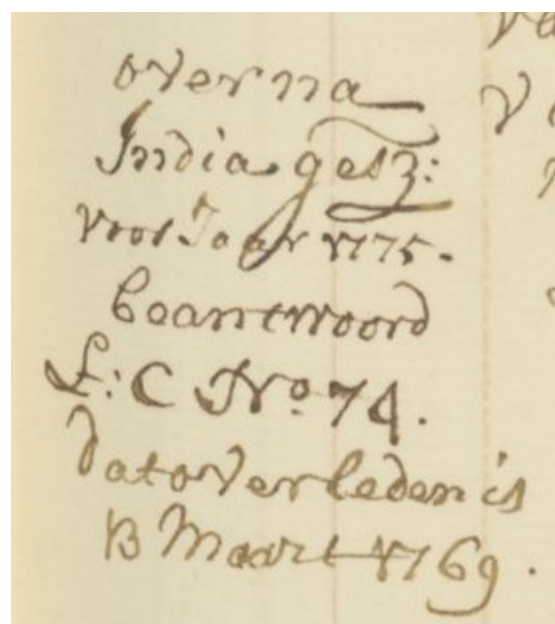 over na
India gesz:
voor Jaar 1775.
beantwoord
L: C No. 74.
dat overleden is
13 Maart 1769.